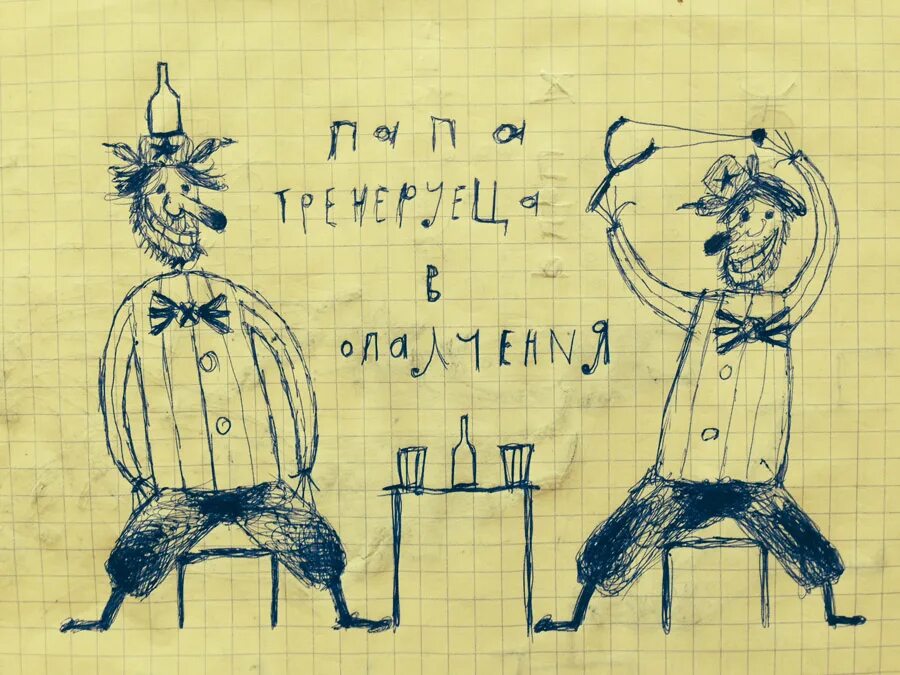 папа
ТРЕНЕРУЕЦа
в
опаЛЧЕНИЯ